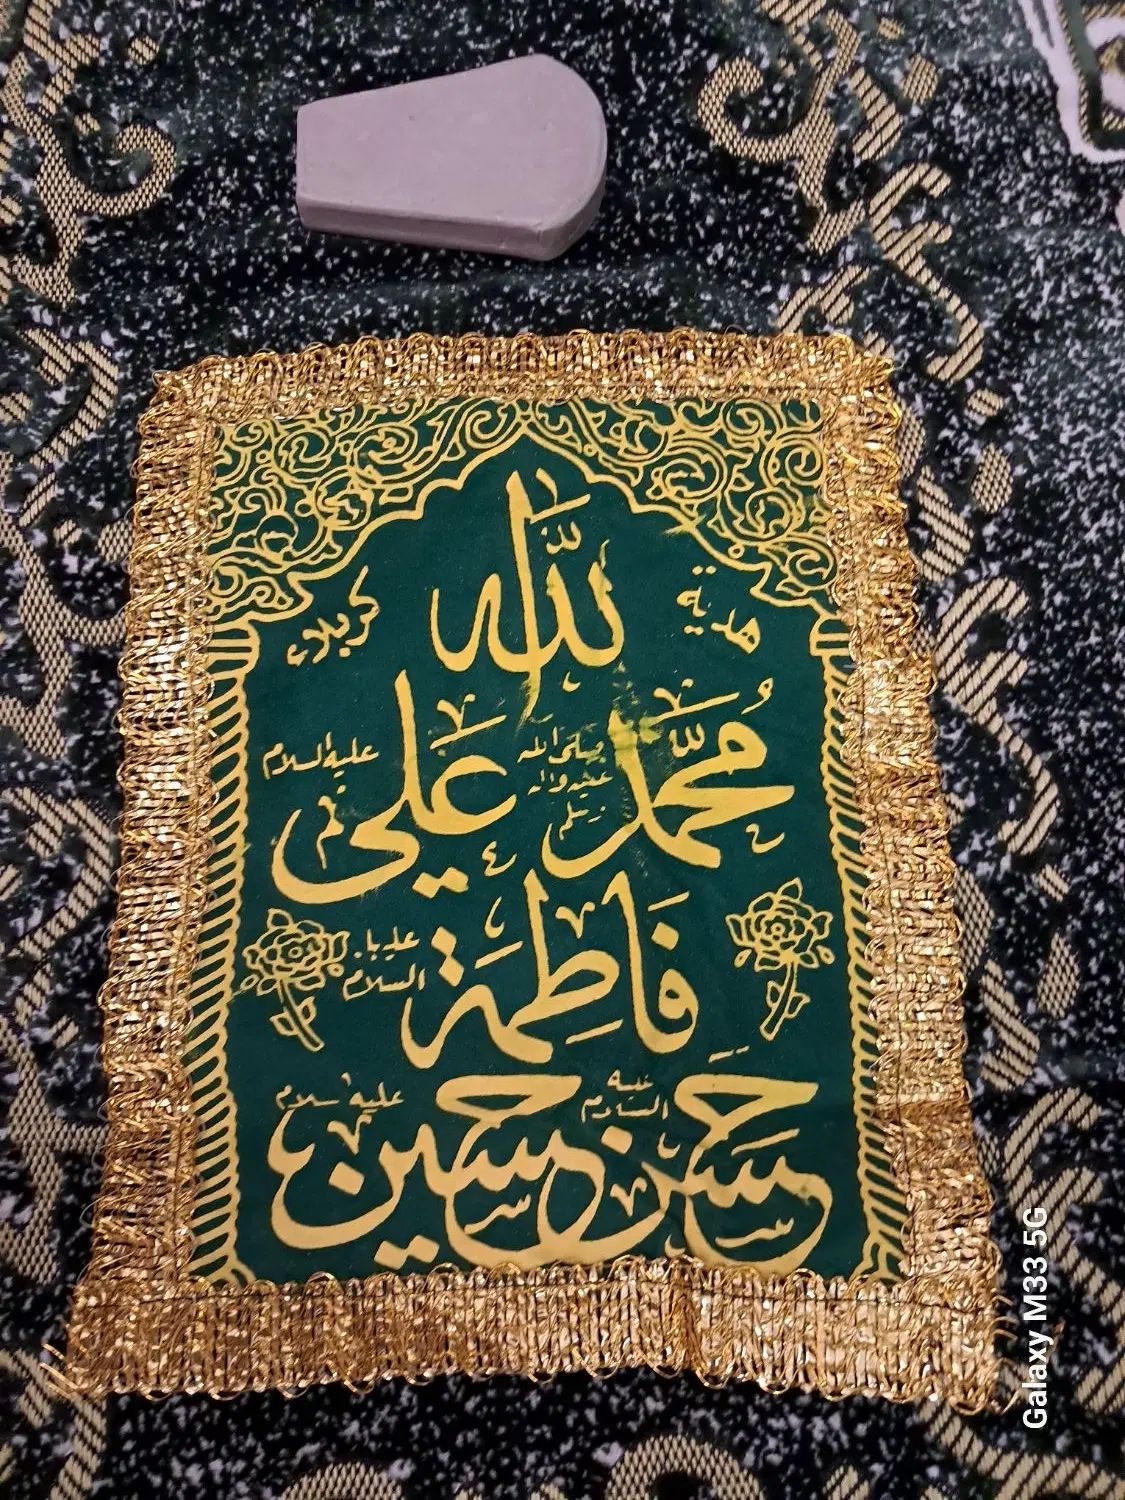 الله
هدية
كربلاء
مُحمّد
صلى الله
عليه واله
وسلم
علي
عليه السلام
فاطمة
عليها
السلام
حسن
عليه
السلام
حسين
عليه السلام
Galaxy M33 5G